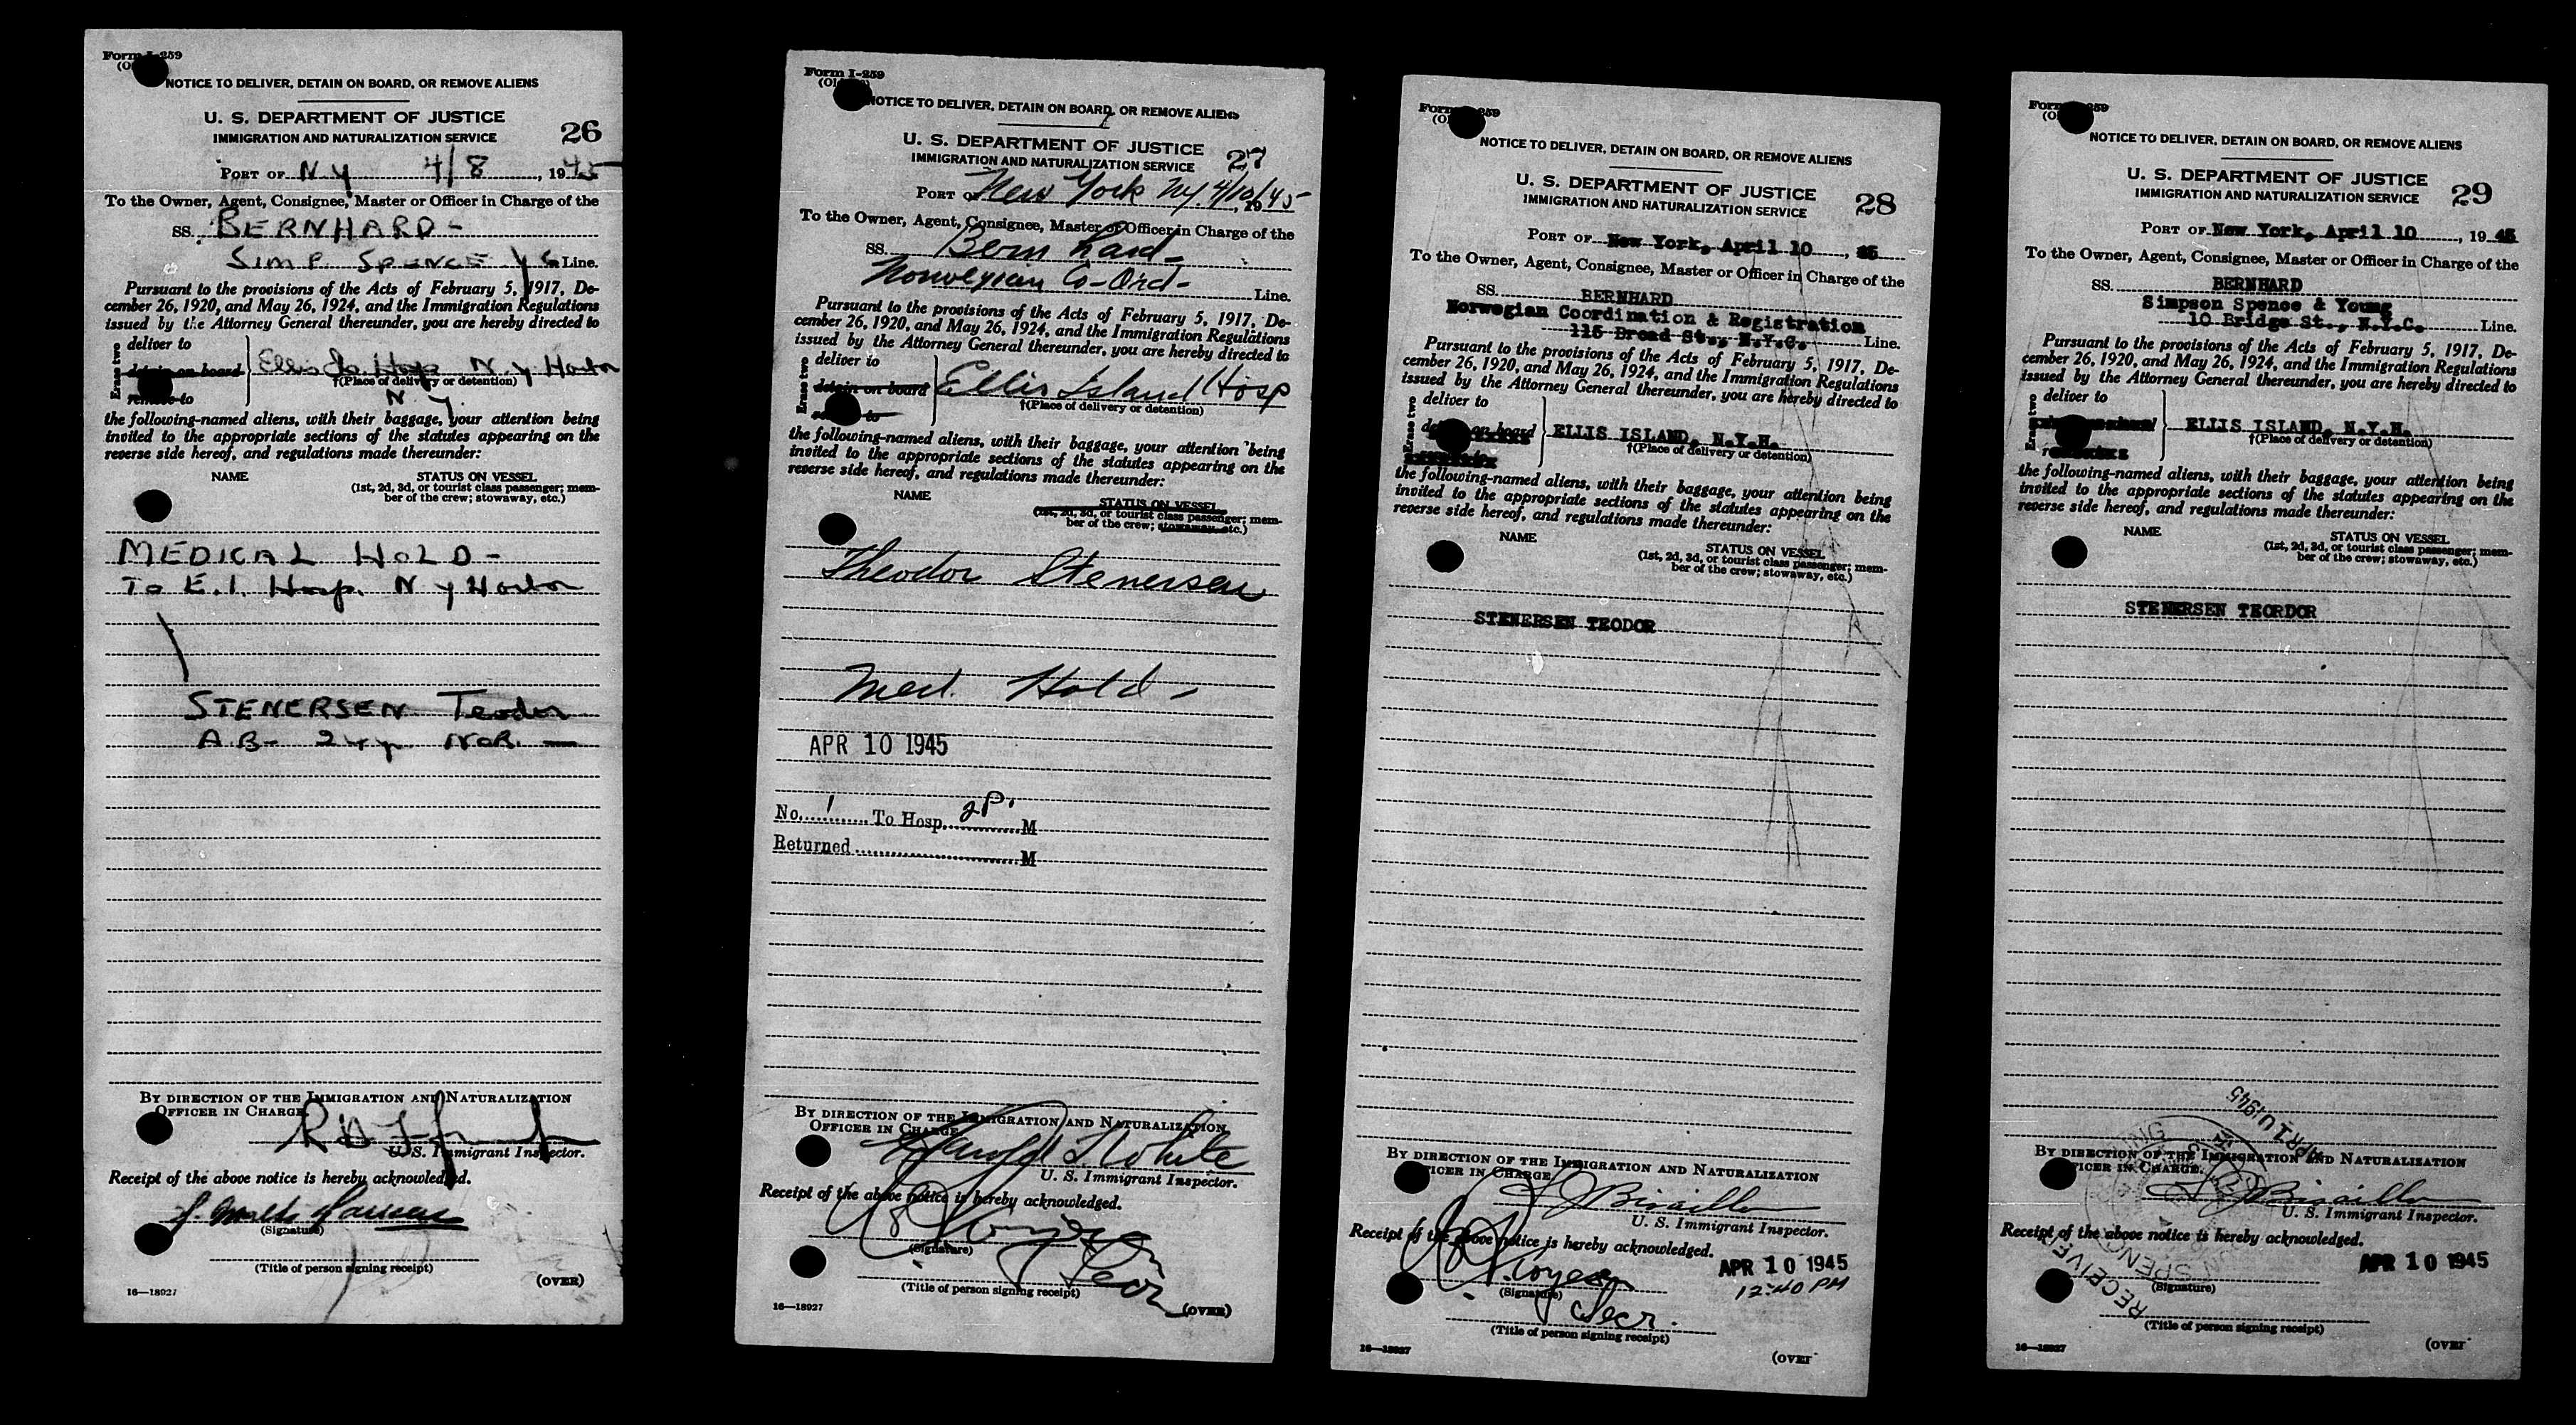 Form I-259
(O
NOTICE TO DELIVER, DETAIN ON BOARD, OR REMOVE ALIENS
U. S. DEPARTMENT OF JUSTICE
IMMIGRATION AND NATURALIZATION SERVICE
26
PORT OF N Y 4/8, 1945
To the Owner, Agent, Consignee, Master or Officer in Charge of the
SS. BERNHARD-
SIMP. SPENCE Y & Line.
Pursuant to the provisions of the Acts of February 5, 1917, De-
cember 26, 1920, and May 26, 1924, and the Immigration Regulations
issued by the Attorney General thereunder, you are hereby directed to
Erase two
deliver to
detain on board
remove to
Ellis Is. Hosp N. Y Harbor
†(Place of delivery or detention)
N. Y.
the following-named aliens, with their baggage, your attention being
invited to the appropriate sections of the statutes appearing on the
reverse side hereof, and regulations made thereunder:
NAME STATUS ON VESSEL
(1st, 2d, 3d, or tourist class passenger; mem-
ber of the crew; stowaway, etc.)
MEDICAL HOLD-
To E.I. Hosp. N Y Harbor
STENERSEN Teodor
A.B- 24 yr. NOR. —
BY DIRECTION OF THE IMMIGRATION AND NATURALIZATION
OFFICER IN CHARGE.
U. S. Immigrant Inspector.
Receipt of the above notice is hereby acknowledged.
(Signature)
(Title of person signing receipt)
(OVER)
16—18927
Form I-259
(Ol
NOTICE TO DELIVER, DETAIN ON BOARD, OR REMOVE ALIENS
U. S. DEPARTMENT OF JUSTICE
IMMIGRATION AND NATURALIZATION SERVICE
27
PORT OF New York NY. 4/10/1945
To the Owner, Agent, Consignee, Master or Officer in Charge of the
SS. Bern hard-
Norwegian Co-Ord- Line.
Pursuant to the provisions of the Acts of February 5, 1917, De-
cember 26, 1920, and May 26, 1924, and the Immigration Regulations
issued by the Attorney General thereunder, you are hereby directed to
Erase two
deliver to
detain on board
to
Ellis Island Hosp
†(Place of delivery or detention)
the following-named aliens, with their baggage, your attention being
invited to the appropriate sections of the statutes appearing on the
reverse side hereof, and regulations made thereunder:
NAME STATUS ON VESSEL
(1st, 2d, 3d, or tourist class passenger; mem-
ber of the crew; stowaway, etc.)
Theodor Stenersen
Med. Hold-
APR 10 1945
No. 1 To Hosp. 2P. M
Returned M
BY DIRECTION OF THE IMMIGRATION AND NATURALIZATION
OFFICER IN CHARGE
Harold J White
U. S. Immigrant Inspector.
Receipt of the above notice is hereby acknowledged.
(Signature)
Secr
(Title of person signing receipt)
(OVER)
16—18927
Form 259
(O
NOTICE TO DELIVER, DETAIN ON BOARD, OR REMOVE ALIENS
U. S. DEPARTMENT OF JUSTICE
IMMIGRATION AND NATURALIZATION SERVICE
28
PORT OF New York, April 10, 45
To the Owner, Agent, Consignee, Master or Officer in Charge of the
SS. BERNHARD
Norwegian Coordination & Registration
115 Broad St., N.Y.C. Line.
Pursuant to the provisions of the Acts of February 5, 1917, De-
cember 26, 1920, and May 26, 1924, and the Immigration Regulations
issued by the Attorney General thereunder, you are hereby directed to
Erase two
deliver to
de on board
ELLIS ISLAND, N.Y.H.
†(Place of delivery or detention)
the following-named aliens, with their baggage, your attention being
invited to the appropriate sections of the statutes appearing on the
reverse side hereof, and regulations made thereunder:
NAME
STATUS ON VESSEL
(1st, 2d, 3d, or tourist class passenger; mem-
ber of the crew; stowaway, etc.)
STENERSEN TEODOR
BY DIRECTION OF THE IMMIGRATION AND NATURALIZATION
FICER IN CHARGE
U. S. Immigrant Inspector.
Receipt of the above notice is hereby acknowledged.
APR 10 1945
12:40 PM
(Signature)
Secr.
(Title of person signing receipt)
16—18927
(OVER
Form 259
(O
NOTICE TO DELIVER, DETAIN ON BOARD, OR REMOVE ALIENS
U. S. DEPARTMENT OF JUSTICE
IMMIGRATION AND NATURALIZATION SERVICE
29
PORT OF New York, April 10, 1945
To the Owner, Agent, Consignee, Master or Officer in Charge of the
SS. BERNHARD
Simpson Spence & Young
10 Bridge St., N.Y.C. Line.
Pursuant to the provisions of the Acts of February 5, 1917, De-
cember 26, 1920, and May 26, 1924, and the Immigration Regulations
issued by the Attorney General thereunder, you are hereby directed to
Erase two
deliver to
ELLIS ISLAND, N.Y.H.
†(Place of delivery or detention)
the following-named aliens, with their baggage, your attention being
invited to the appropriate sections of the statutes appearing on the
reverse side hereof, and regulations made thereunder:
NAME
STATUS ON VESSEL
(1st, 2d, 3d, or tourist class passenger; mem-
ber of the crew; stowaway, etc.)
STENERSEN TEORDOR
APR 10 1945
BY DIRECTION OF THE IMMIGRATION AND NATURALIZATION
FICER IN CHARGE.
U. S. Immigrant Inspector.
Receipt of the above notice is hereby acknowledged.
RECEIVED
APR 10 1945
(Signature)
(Title of person signing receipt)
16—18927
(OVER